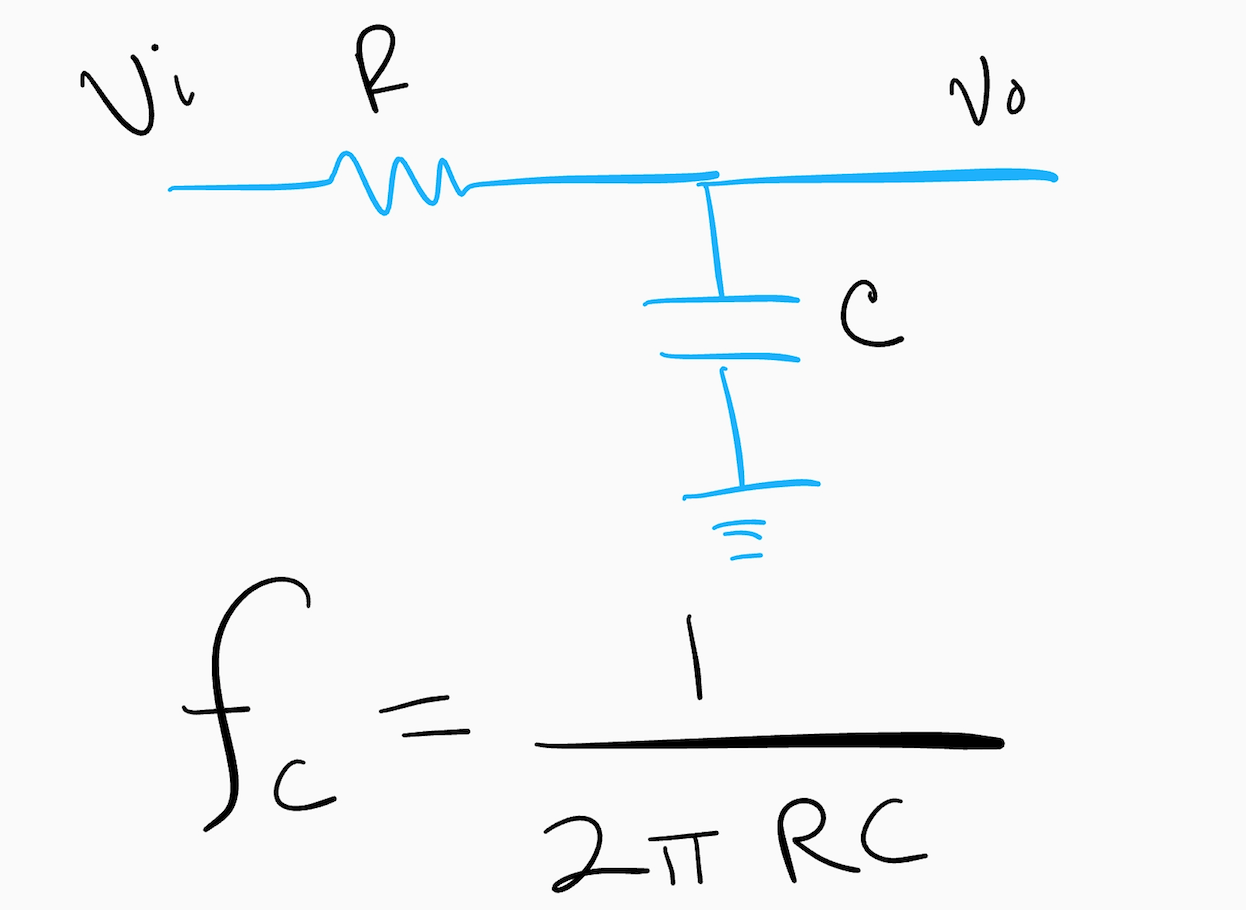 Vi R Vo
C
fc = 1
2π RC